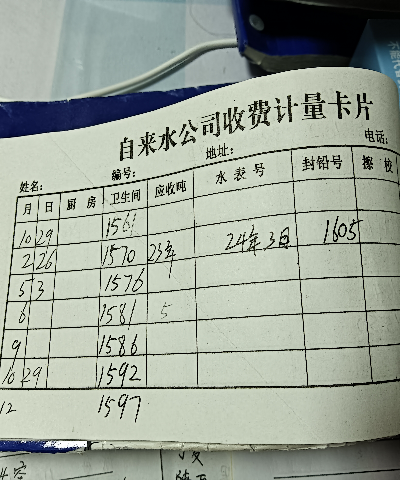 自来水公司收费计量卡片
姓名： 编号： 地址： 电话：
月 日 厨房 卫生间 应收吨 水表号 封铅号 擦校
10 29 1561
2 26 1570 23年 24年3日 1605
5 3 1576
6 1581 5
9 1586
10 29 1592
12 1597